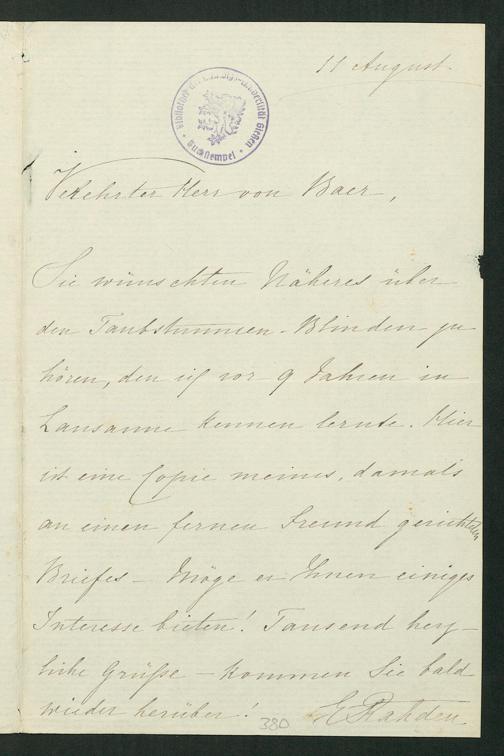 11 August.
Bibliothek der Ludwigs-Universität Gießen
Buchstempel
Verehrter Herr von Baer,
Sie wünschten Näheres über
den Taubstummen-Blinden zu
hören, den ich vor 9 Jahren in
Lausanne kennen lernte. Hier
ist eine Copie meines, damals
an einen fernen Freund gerichteten
Briefes – Möge er Ihnen einiges
Interesse bieten! Tausend herz-
liche Grüße – kommen Sie bald
wieder herüber!
E Rahden
380